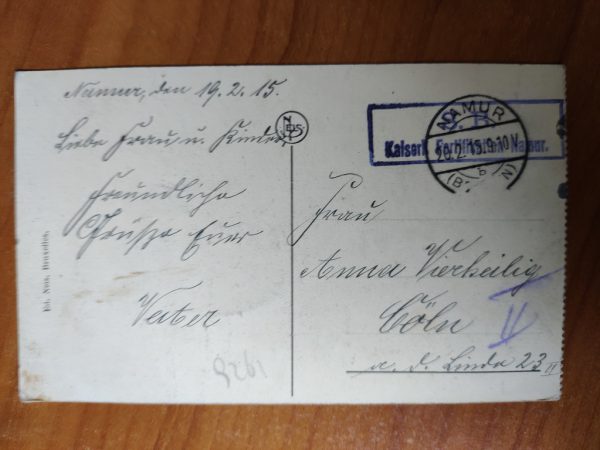 Namur, den 19.2.15.
Liebe Frau u. Kinder,
Freundliche
Grüsse Euer
Vater
Ed. Nels, Bruxelles.
NAMUR
20.2.15.9-10V
Kaiserl. Namur.
Frau
Anna Vierheilig
Cöln
a. d. Linde 23 II
II